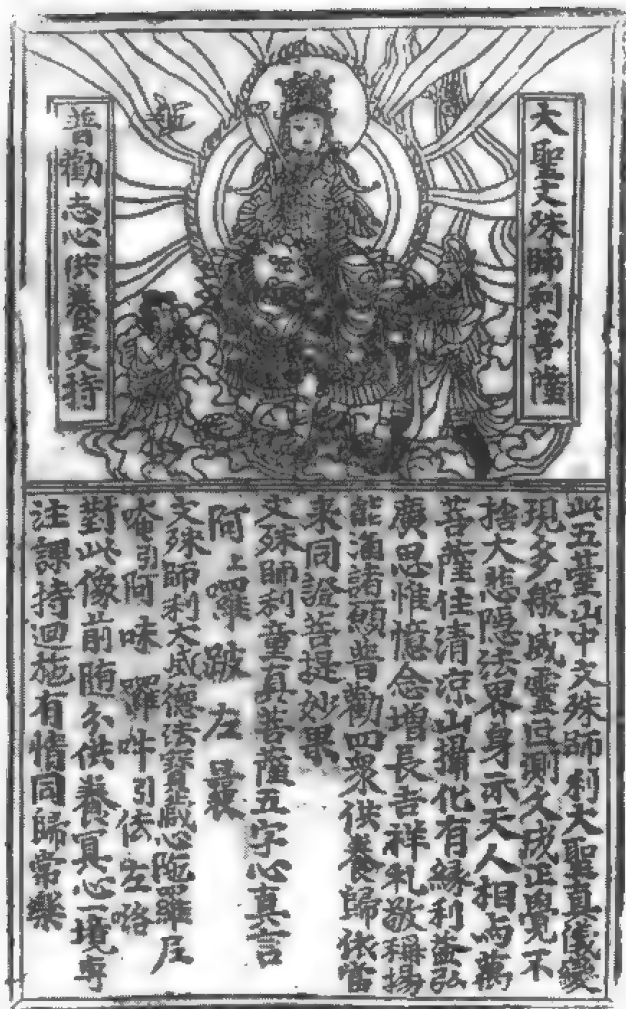 大聖文殊師利菩薩
普勸志心供養受持
此五臺山中文殊師利大聖真儀變
現多般威靈叵測久成正覺不
捨大悲隱法界身示天人相与萬
菩薩住清涼山攝化有緣利益弘
廣思惟憶念增長吉祥礼敬稱揚
能滿諸願普勸四衆供養歸依當
来同證菩提妙果
文殊師利童真菩薩五字心真言
阿上囉跛左曩
文殊師利大威德法寶藏心陁羅尼
唵引阿味羅吽引佉左咯
對此像前随分供養冥心一境專
注課持迴施有情同歸常樂